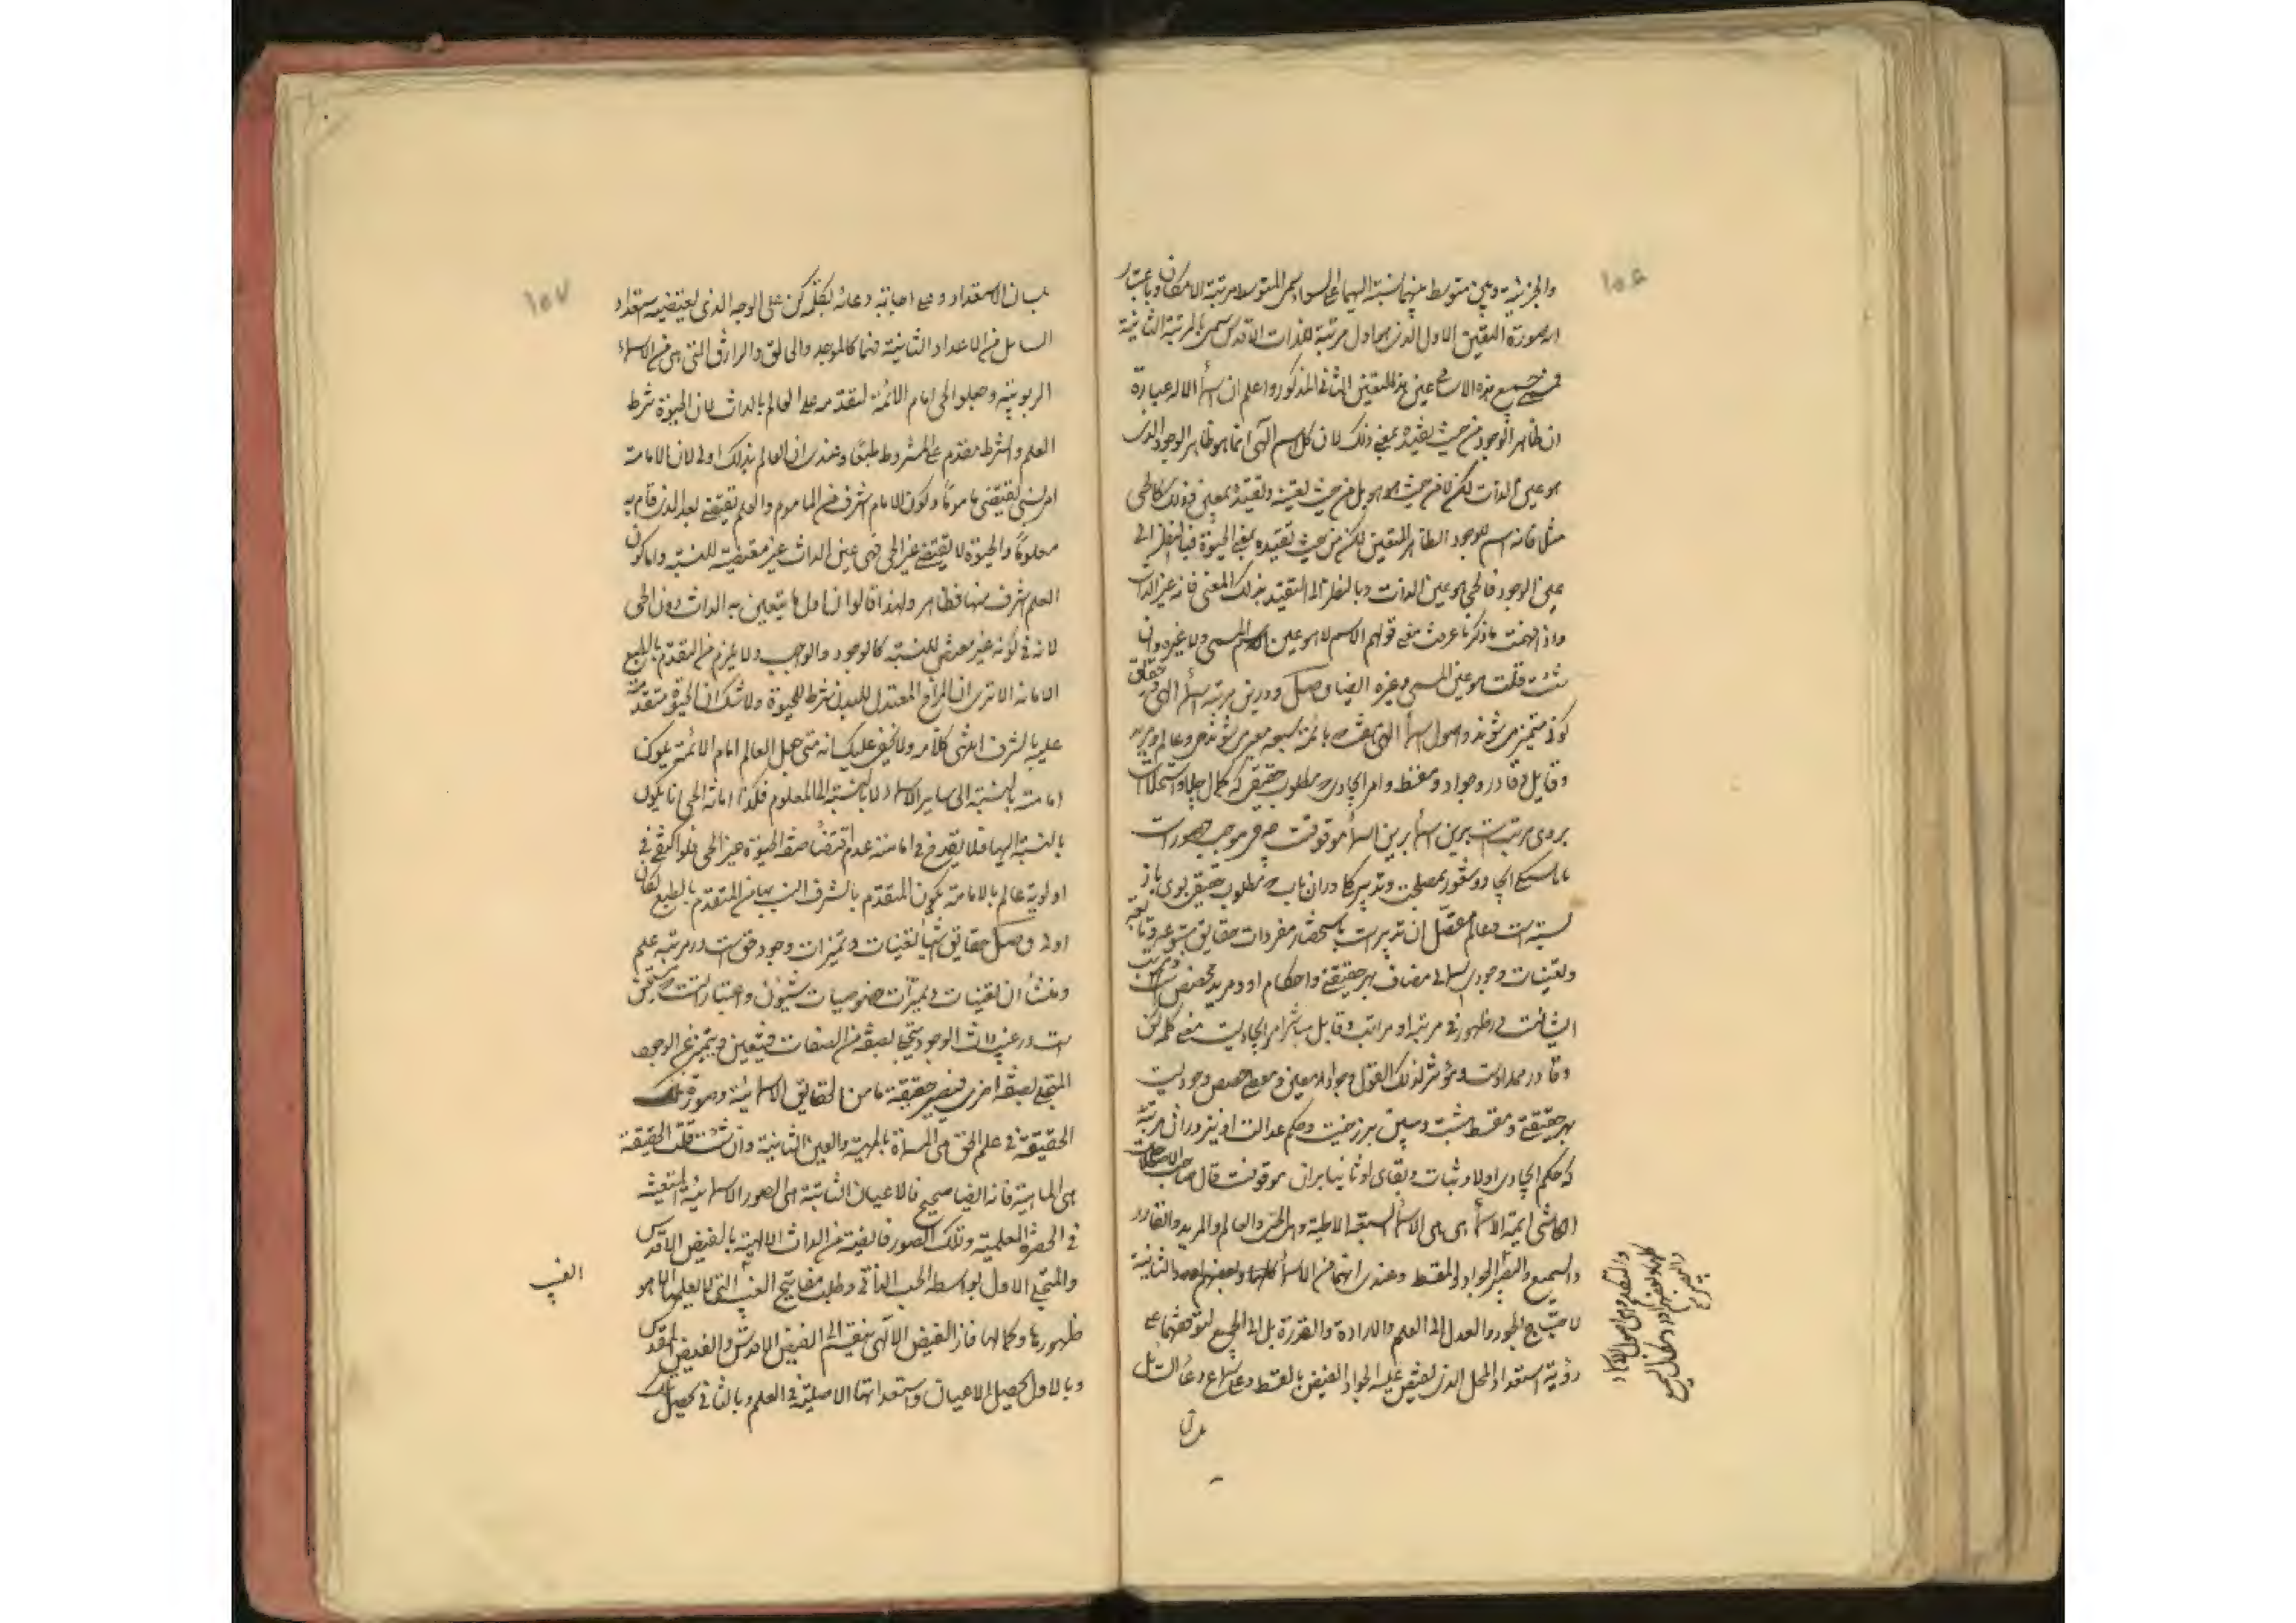 والجزئیة وهی متوسط بینهما نسبته الیهما علی السواء سمی المتوسط مرتبة الامکان وباعتبار
انه صورة التعین الاول الذی هو اول مرتبة للذات الاقدس سمی بالمرتبة الثانیة
جمیع هذه الاسماء عین هذا التعین الثانی المذکور واعلم ان اسماء الاله عبارة
ان ظاهر الوجود من حیث تقیده بمعنی وذلک لان کل اسم الهی انما هو ظاهر الوجود الذی
هو عین الذات لکن لا من حیث هو هو بل من حیث تعینه وتقیده بمعنی وذلک کالحی
مثلا فانه اسم للوجود الظاهر المتعین لکن من حیث تقیده بمعنی الحیوة فبالنظر الی
عین الوجود فالحی هو عین الذات وبالنظر الی التقید بذلک المعنی فانه غیر الذات
واذا فهمت ما ذکرنا عرفت معنی قولهم الاسم لا هو عین المسمی ولا غیره وان
شئت قلت هو عین المسمی وغیره ایضا وصل ودرین مرتبه اسماء الهی وحقائق
کونی متمیز می شوند واصول اسماء الهی که بائمه سبعه معبر می شوند حی وعالم ومرید
وقایل وقادر وجواد ومقسط وامر ایجادی و مطلوب حقیقی که کمال جلا واستجلاست
بروی مرتبست برین اسماء موقوفست چه حی موجب
ایجاد وشعور بمصلحت وتدبیر کار دران باب و مطلوب حقیقی بوی باز
بسته است وعالم مفصل آن تدبیر است باستحضار مفردات حقایق متبوعه وتابعه
وتعینات وجود اسمائی مضاف بهر حقیقتی واحکام او ومرید مخصص ومرتب
ایشانست در ظهور فی مرتبة او مراتب وقایل مباشر امر ایجادیست بمعنی کلمه کن
وقادر ممد اوست ومؤثر لذلک القول وجواد معین ومعطی حصص وجودیست
بهر حقیقتی ومقسط مثبت ومبین برزخیت وحکم عدالت او نیز دران مرتبه
که حکم ایجادی اولا وثبات وبقای او ثانیا بران موقوفست قال صاحب الاصطلاحات
الکاشی ایمة الاسماء هی الاسماء السبعة الالهیة وهی الحی والعالم والمرید والقادر
والسمیع والبصیر والجواد والمقسط وعندی انهما من الاسماء والثانیة
لاحتیاج الجود والعدل الی العلم والارادة والقدرة بل الی الجمیع لتوقفهما علی
رؤیة استعداد المحل الذی یفیض علیه الجواد الفیض بالقسط وعلی سماع دعاء السائل
بلسان الاستعداد وعلی اجابته دعائه بکلمة کن علی الوجه الذی یقتضیه استعداد
السایل من الاعداد الثانیة فهما کالموجد والخالق والرازق التی هی من الاسماء
الربوبیة وجعلوا الحی امام الائمة لتقدمه علی العالم بالذات لان الحیوة شرط
العلم والشرط مقدم علی المشروط طبعا وعندی ان العالم بذلک اولی لان الامامة
امر نسبی یقتضی ماموما وکون الامام اشرف من الماموم والعلم یقتضی بعد الذی قام به
معلوما والحیوة لا یقتضی غیر الحی فهی عین الذات غیر مقتضیة للنسبة واما کون
العلم اشرف منها فظاهر ولهذا قالوا ان اول ما یتعین به الذات دون الحی
لانه فی کونه غیر مقتض للنسبة کالوجود والواجب ولا یلزم من التقدم بالطبع
الامامة الا تری ان المزاج المعتدل للبدن شرط للحیوة ولا شک ان الحیوة متقدمة
علیه بالشرف انتهی کلامه ولا یخفی علیک انه متی جعل العالم امام الائمة یکون
امامته بالنسبة الی سایر الاسماء لا بالنسبة الی المعلوم فکذا امامة الحی انما یکون
بالنسبة الیها فلا یقدح فی امامته عدم اقتضاء صفة الحیوة غیر الحی فلو اکتفی فی
اولویة عالم بالامامة بکون المتقدم بالشرف انسب بها من المتقدم بالطبع لکان
اولی وصل حقایق اشیا تعینات وتمیزات وجود حق است در مرتبه علم
ومنشأ آن تعینات وتمیزات خصوصیات شیون واعتباراتست مستجن
است در غیب ذات الوجود یتجلی بصفة من الصفات فیتعین ویتمیز عن الوجود
المتجلی بصفة اخری فیصیر حقیقة ما من الحقایق الاسمائیة وصورة تلک
الحقیقة فی علم الحق هی المسماة بالمهیة والعین الثابتة وان شئت قلت الحقیقة
هی الماهیة فانه ایضا صحیح فالاعیان الثابتة هی الصور الاسمائیة المتعینة
فی الحضرة العلمیة وتلک الصور فایضة من الذات الالهیة بالفیض الاقدس
والتجلی الاول بواسطة الحب الذاتی وطلب مفاتیح الغیب التی لا یعلمها الا هو
ظهورها وکمالها فان الفیض الالهی ینقسم الی الفیض الاقدس والفیض المقدس
وبالاول یحصل الاعیان واستعداداتها الاصلیة فی العلم وبالثانی یحصل تلک
الغیب
١٥٧